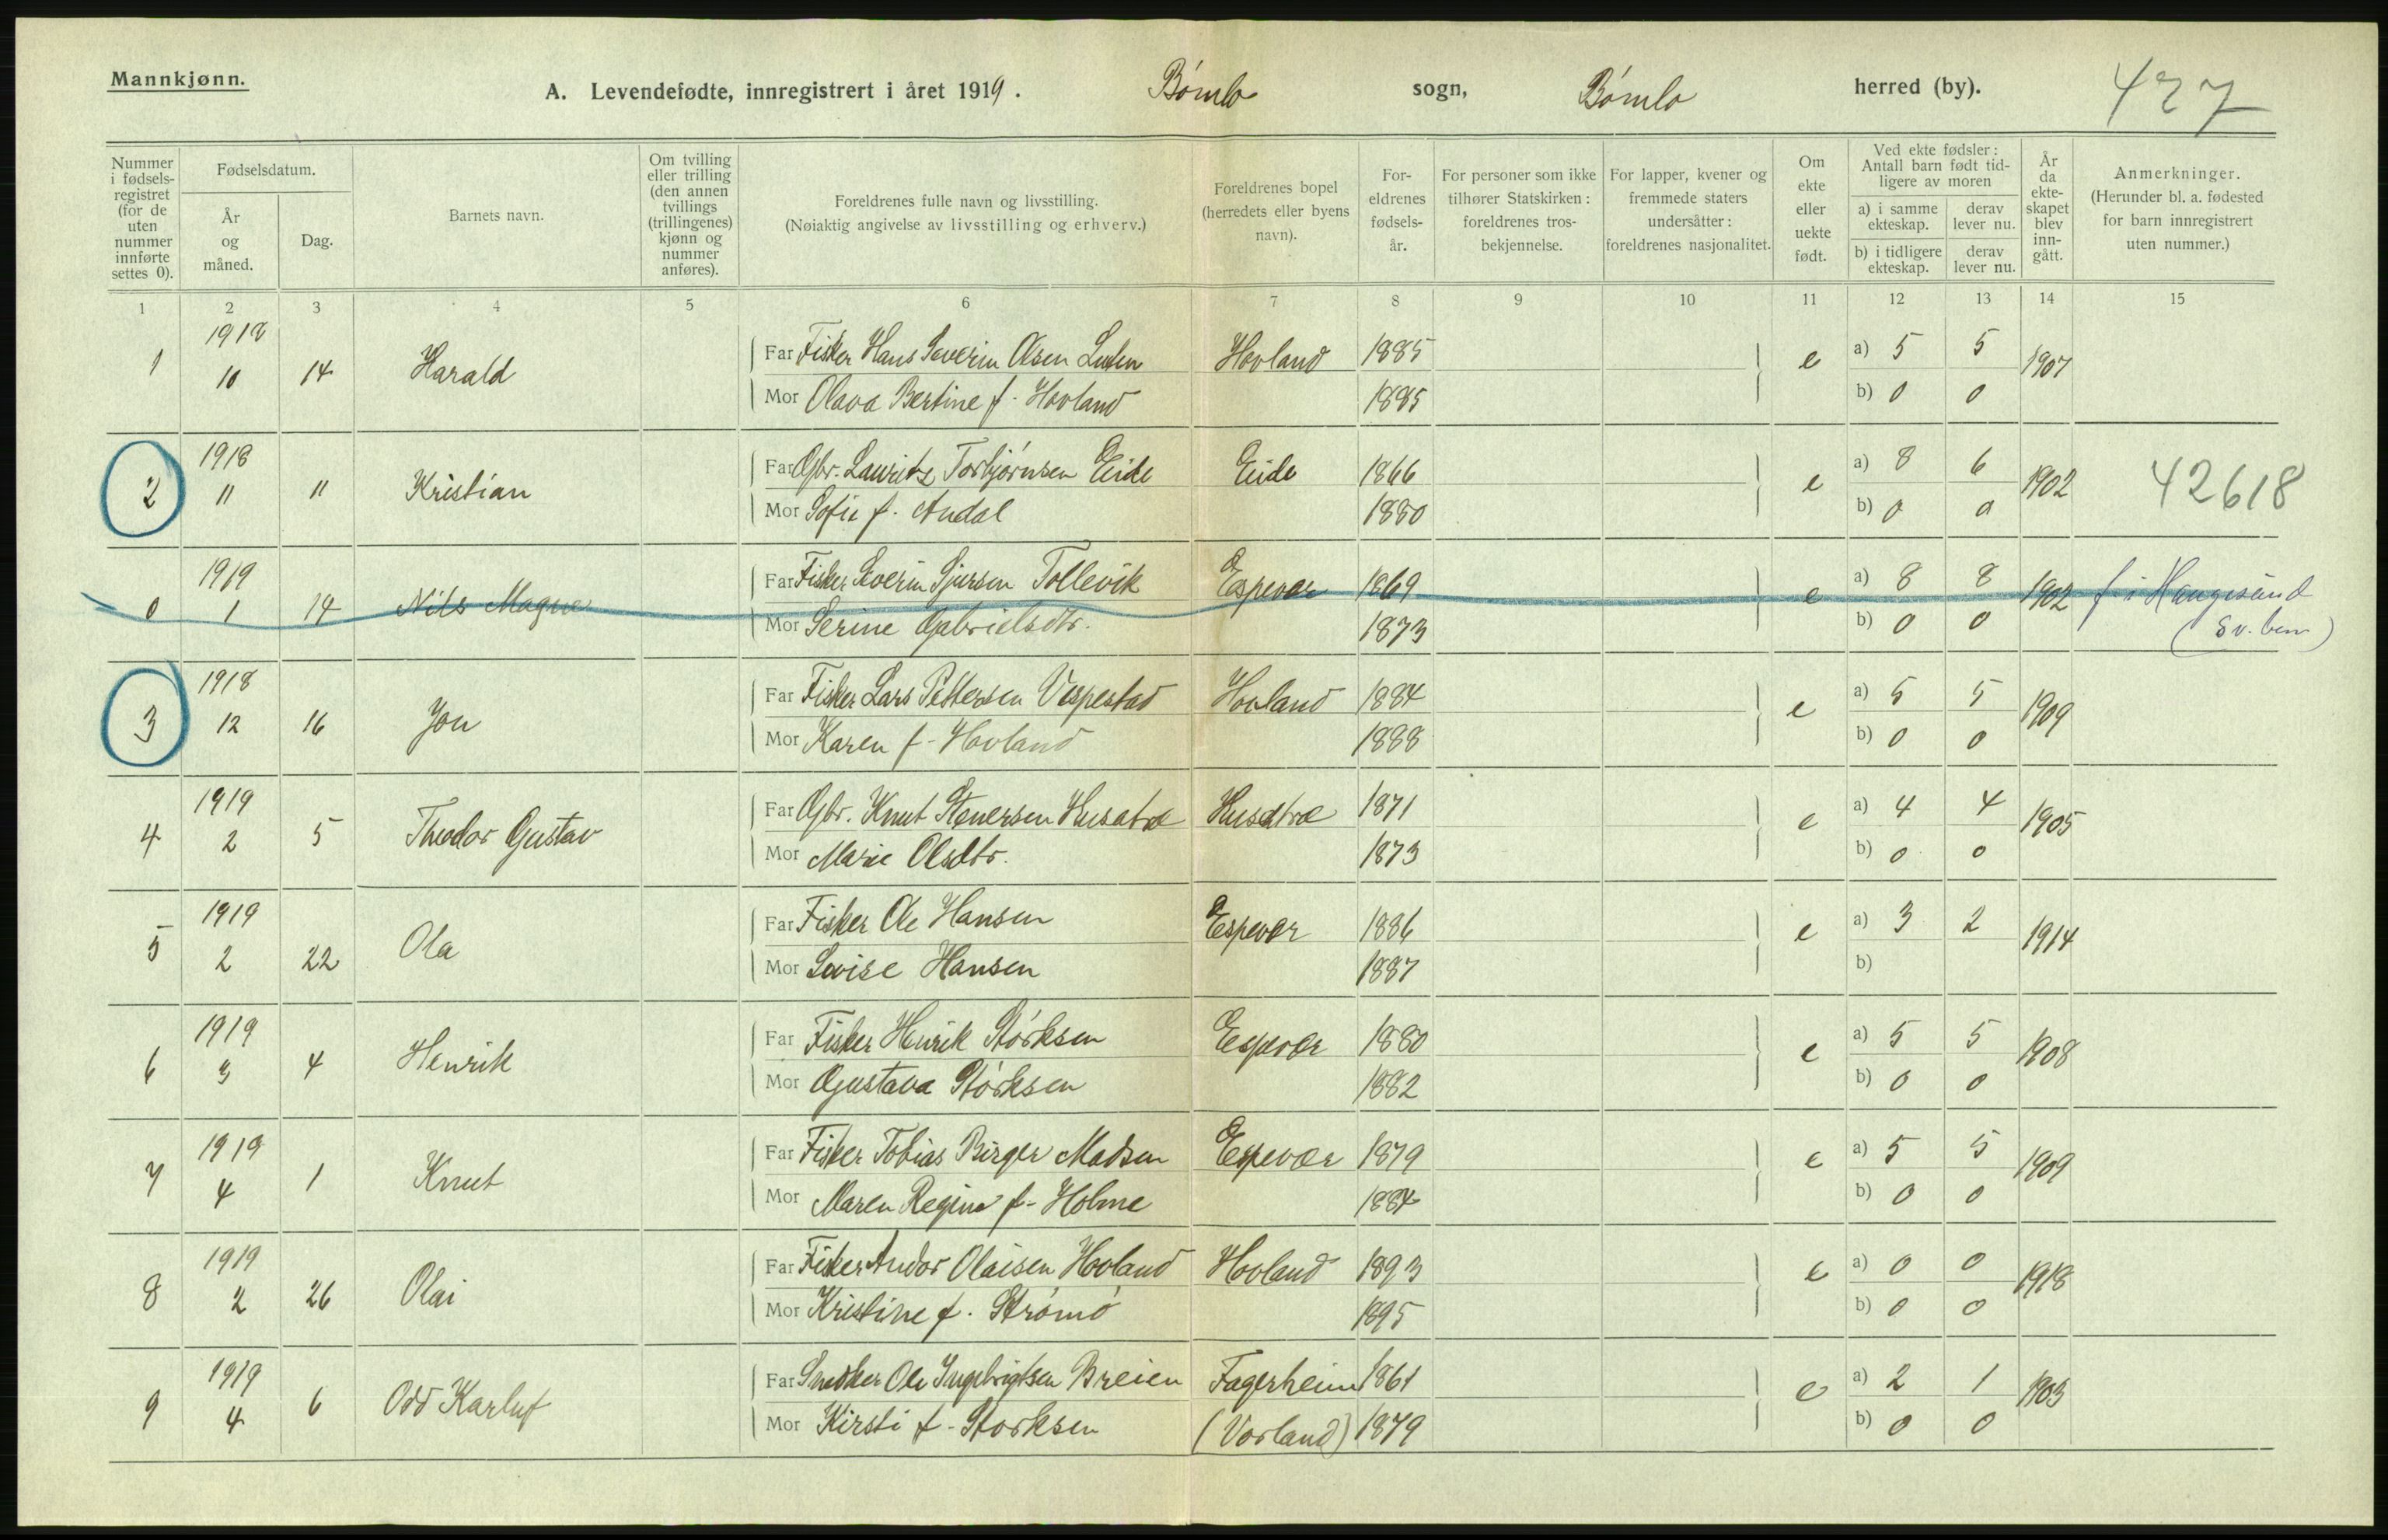 Mannkjønn.
A. Levendefødte, innregistrert i året 1919. Bømlo sogn, Bømlo herred (by). 427
Nummer i fødselsregistret (for de uten nummer innførte settes 0).
Fødselsdatum.
År og måned.
Dag.
Barnets navn.
Om tvilling eller trilling (den annen tvillings (trillingenes) kjønn og nummer anføres).
Foreldrenes fulle navn og livsstilling.
(Nøiaktig angivelse av livsstilling og erhverv.)
Foreldrenes bopel (herredets eller byens navn).
Foreldrenes fødselsår.
For personer som ikke tilhører Statskirken: foreldrenes trosbekjennelse.
For lapper, kvener og fremmede staters undersåtter: foreldrenes nasjonalitet.
Om ekte eller uekte født.
Ved ekte fødsler: Antall barn født tidligere av moren
a) i samme ekteskap. derav lever nu.
b) i tidligere ekteskap. derav lever nu.
År da ekteskapet blev inngått.
Anmerkninger.
(Herunder bl. a. fødested for barn innregistrert uten nummer.)
1 2 3 4 5 6 7 8 9 10 11 12 13 14 15
1 1918 10 14 Harald Far Fisker Hans Severin Olsen Hovland 1885 e a) 5 5 1907
Mor Olava Bertine f. Hovland 1885 b) 0 0
2 1918 11 11 Kristian Far Gbr. Lauritz Torbjørnsen Eide Eide 1866 e a) 8 6 1902 42618
Mor Sofie f. Andal 1880 b) 0 0
0 1919 1 14 Nils Magne Far Fisker Severin Sjursen Tollevik Espevær 1869 e a) 8 8 1902 f i Haugesund
Mor Serine Gabrielsdtr. 1873 b) 0 0 (Sv. bem)
3 1918 12 16 Jon Far Fisker Lars Pettersen Vespestad Hovland 1884 e a) 5 5 1909
Mor Karen f. Hovland 1888 b) 0 0
4 1919 2 5 Theodor Gustav Far Gbr. Knut Stenersen Husatræ Husatræ 1871 e a) 4 4 1905
Mor Marie Olsdtr. 1873 b) 0 0
5 1919 2 22 Ola Far Fisker Ole Hansen Espevær 1886 e a) 3 2 1914
Mor Lovise Hansen 1887 b)
6 1919 3 4 Henrik Far Fisker Henrik Størksen Espevær 1880 e a) 5 5 1908
Mor Gustava Størksen 1882 b) 0 0
7 1919 4 1 Knut Far Fisker Tobias Birger Madsen Espevær 1879 e a) 5 5 1909
Mor Maren Regine f. Holme 1884 b) 0 0
8 1919 2 26 Olai Far Fisker Andor Olaisen Hovland Hovland 1893 e a) 0 0 1918
Mor Kristine f. Strømø 1895 b) 0 0
9 1919 4 6 Odd Karluf Far Snedker Ole Ingebrigtsen Breien Fagerheim 1861 e a) 2 1 1903
Mor Kirsti f. Storksen (Vorland) 1879 b) 0 0